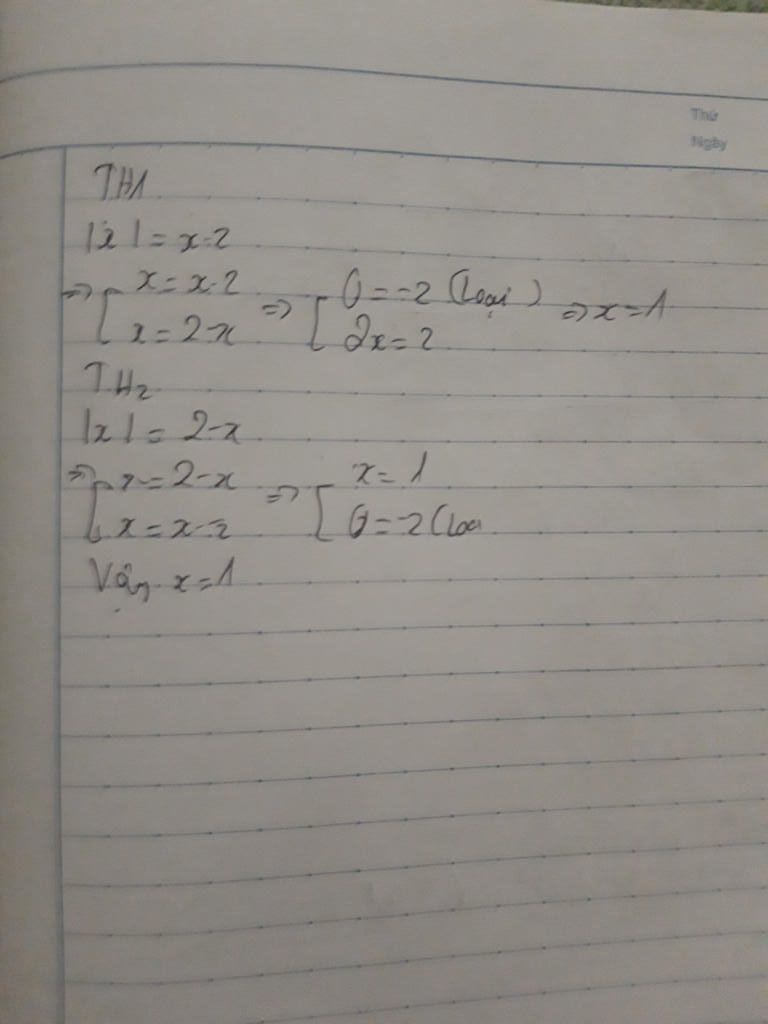 Thứ
Ngày
TH1
|x| = x-2
=> [ x = x-2 => [ 0 = -2 (Loại) => x = 1
x = 2-x 2x = 2
TH2
|x| = 2-x
=> [ x = 2-x => [ x = 1
x = x-2 0 = -2 (Loạ
Vậy x = 1